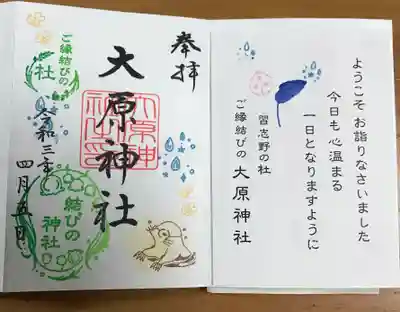 ようこそ お詣りなさいました
今日も 心温まる
一日となりますように
習志野の杜
ご縁結びの 大原神社
奉拝
大原神社
ご縁結びの
社
令和三年
四月五日
結びの
神社